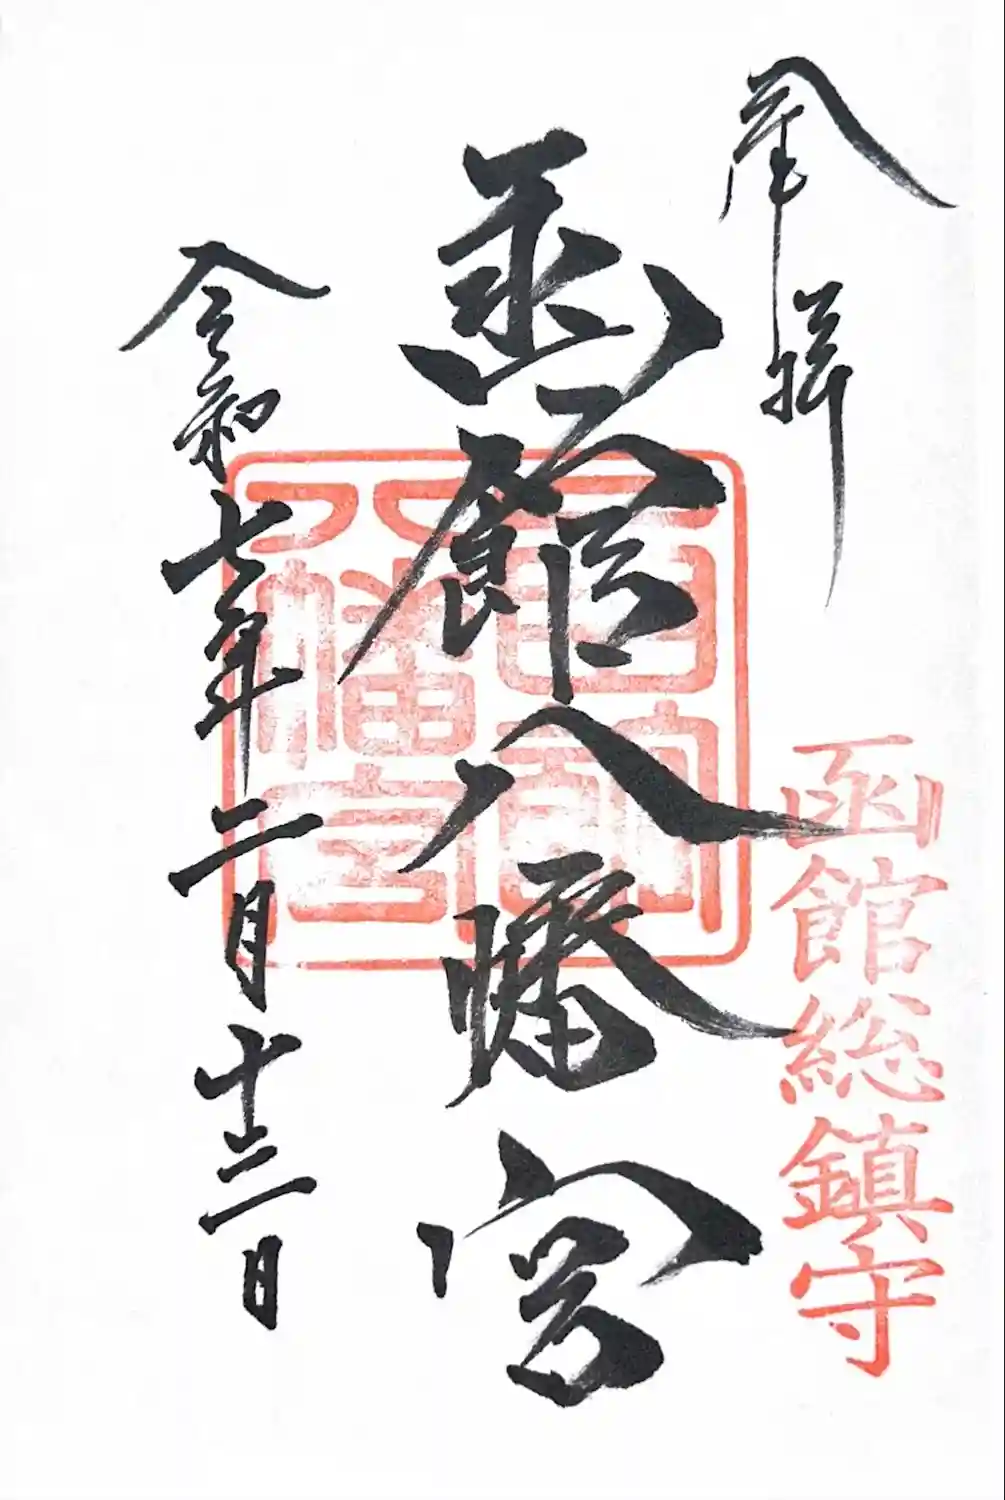 奉拝
函館総鎮守
函館八幡宮
八幡宮
令和七年二月十三日